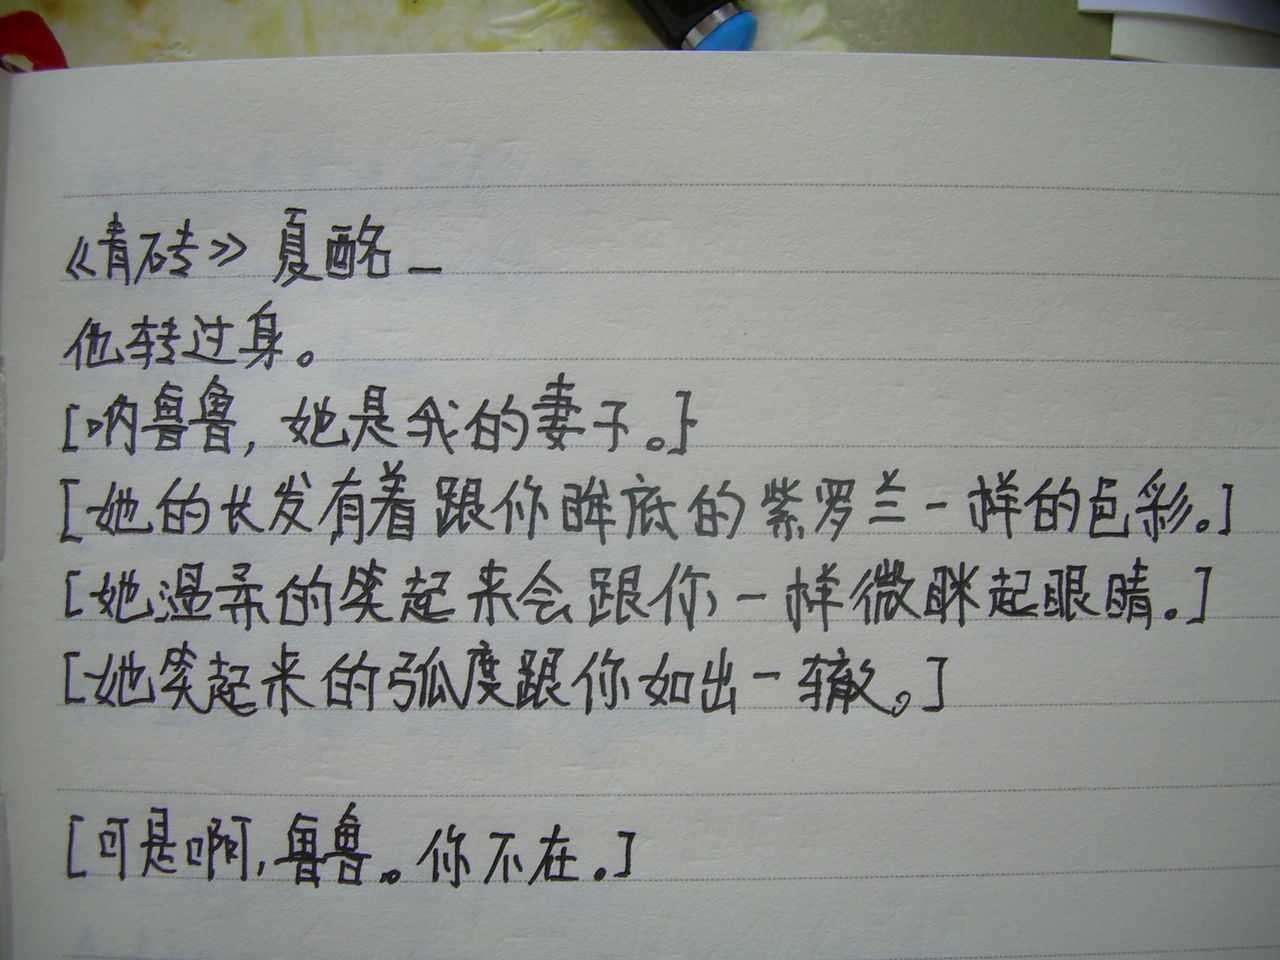 《青砖》夏酩_
他转过身。
[呐鲁鲁,她是我的妻子。]
[她的长发有着跟你眸底的紫罗兰一样的色彩。]
[她温柔的笑起来会跟你一样微眯起眼睛。]
[她笑起来的弧度跟你如出一辙。]
[可是啊,鲁鲁。你不在。]